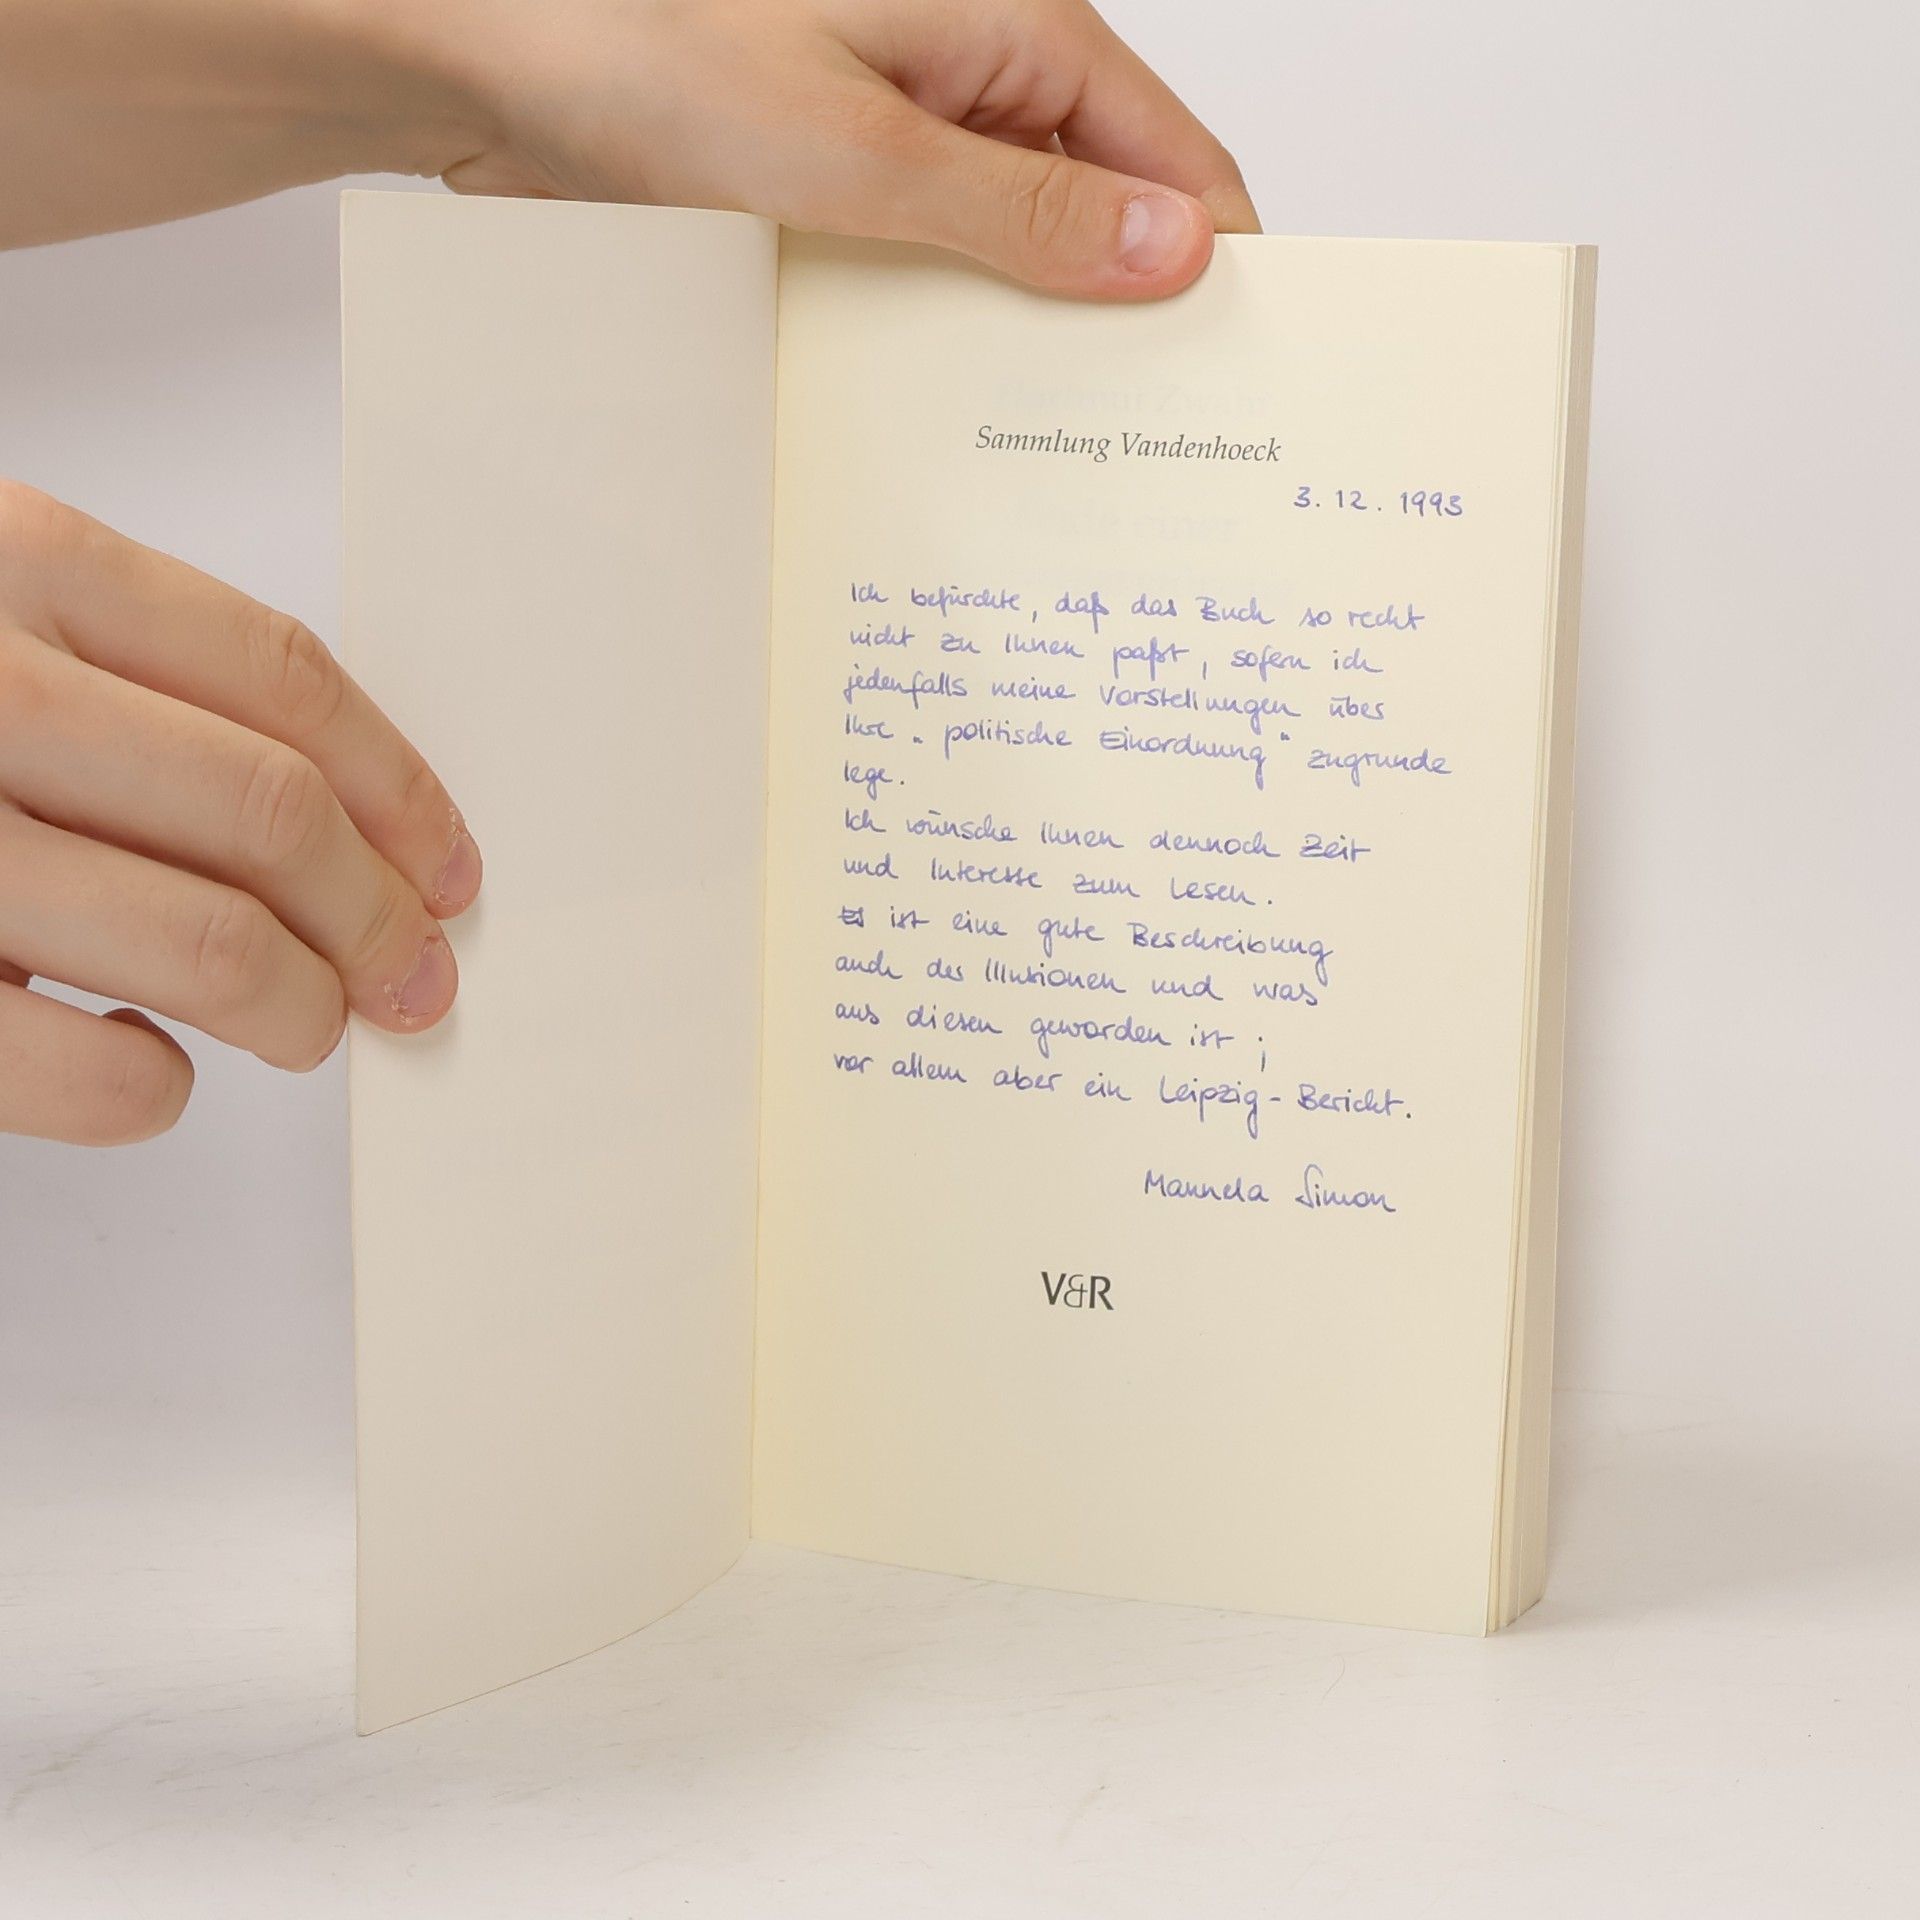 Sammlung Vandenhoeck
3. 12. 1993
Ich befürchte, daß das Buch so recht
nicht zu Ihnen paßt, sofern ich
jedenfalls meine Vorstellungen über
Ihre „politische Einordnung" zugrunde
lege.
Ich wünsche Ihnen dennoch Zeit
und Interesse zum Lesen.
Es ist eine gute Beschreibung
auch der Illusionen und was
aus diesen geworden ist;
vor allem aber ein Leipzig-Bericht.
Manuela Simon
V&R